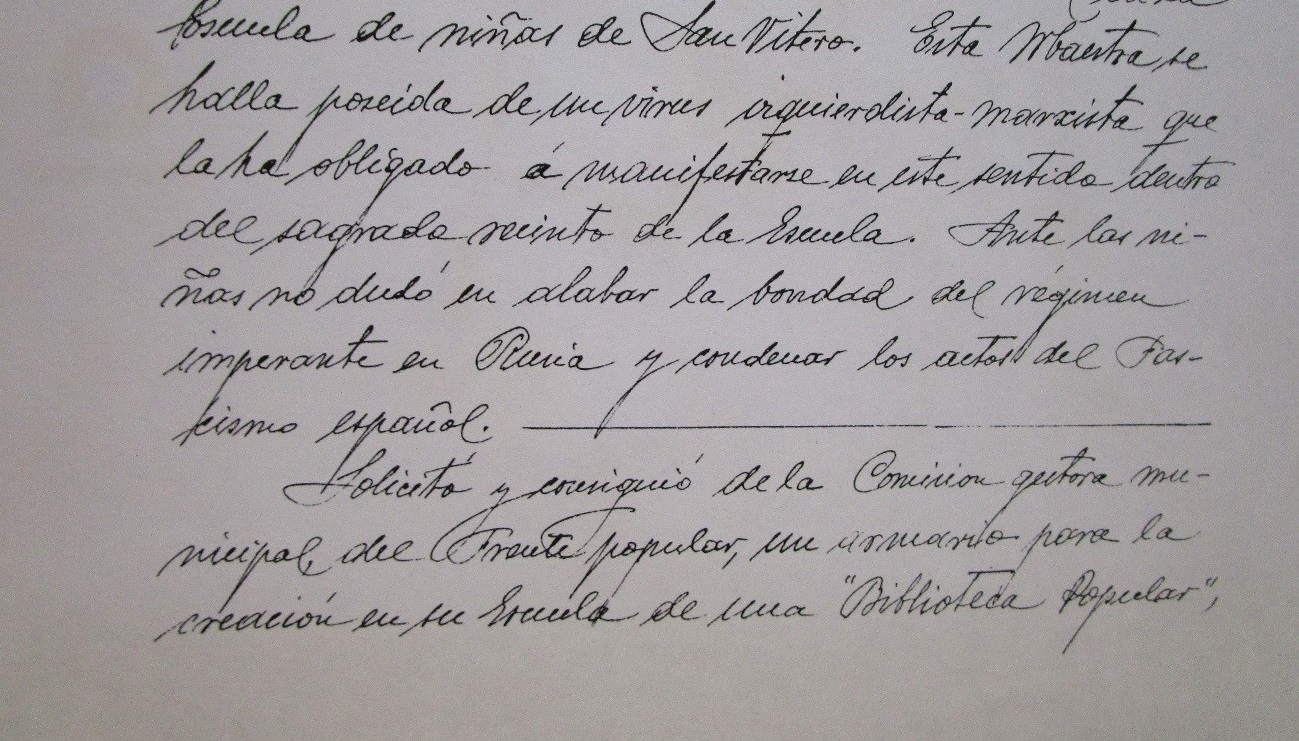 Escuela de niñas de San Vitero. Esta Maestra se
halla poseida de un virus izquierdista-marxista que
la ha obligado á manifestarse en este sentido dentro
del sagrado recinto de la Escuela. Ante las ni-
ñas no dudó en alabar la bondad del régimen
imperante en Rusia y condenar los actos del Fas-
cismo español.
Solicitó y consiguió de la Comision gestora mu-
nicipal, del Frente popular, un armario para la
creación en su Escuela de una "Biblioteca Popular",